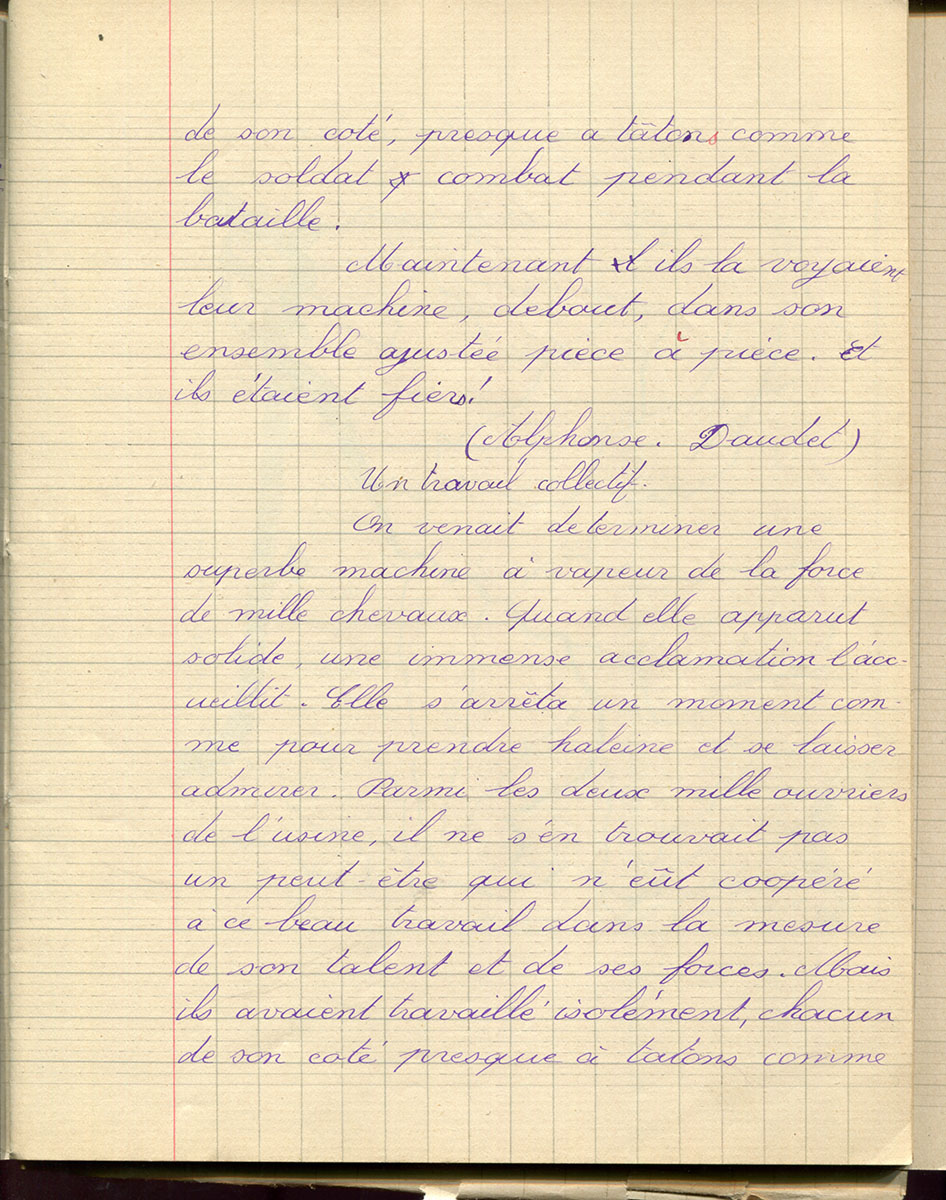 de son coté, presque a tâtons comme
le soldat combat pendant la
bataille.
Maintenant ils la voyaient
leur machine, debout, dans son
ensemble ajustéé pièce à pièce. Et
ils étaient fiers!
(Alphonse. Daudet)
Un travail collectif.
On venait determiner une
superbe machine à vapeur de la force
de mille chevaux. Quand elle apparut
solide, une immense acclamation l'acc-
ueillit. Elle s'arrêta un moment com-
me pour prendre haleine et se laisser
admirer. Parmi les deux mille ouvriers
de l'usine, il ne s'en trouvait pas
un peut-être qui n'eût coopéré
à ce beau travail dans la mesure
de son talent et de ses forces. Mais
ils avaient travaillé isolément, chacun
de son coté presque à tatons comme